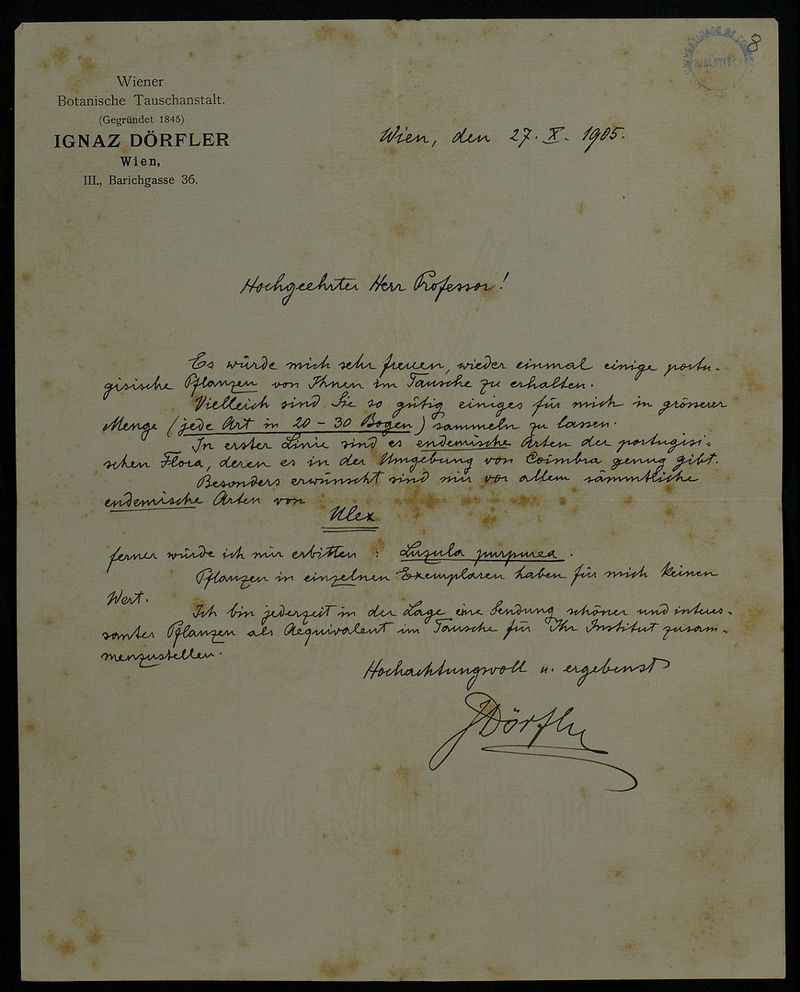 8
Wiener
Botanische Tauschanstalt.
(Gegründet 1845)
IGNAZ DÖRFLER
Wien,
III., Barichgasse 36.
Wien, den 27. X. 1905.
Hochgeehrter Herr Professor!
Es würde mich sehr freuen, wieder einmal einige portu-
gisische Pflanzen von Ihnen im Tausche zu erhalten.
Vielleich sind Sie so gütig einiges für mich in grösserer
Menge (jede Art in 20 - 30 Bogen) sammeln zu lassen.
In erster Linie sind es endemische Arten der portugisi-
schen Flora, deren es in der Umgebung von Coimbra genug gibt.
Besonders erwünscht sind mir vor allem sämmtliche
endemische Arten von
Ulex
ferner würde ich mir erbitten : Luzula purpurea.
Pflanzen in einzelnen Exemplaren haben für mich keinen
Wert.
Ich bin jederzeit in der Lage eine Sendung schöner und interes-
santer Pflanzen als Aequivalent im Tausche für Ihr Institut zusam-
menzustellen.
Hochachtungsvoll u. ergebenst
IDörfler